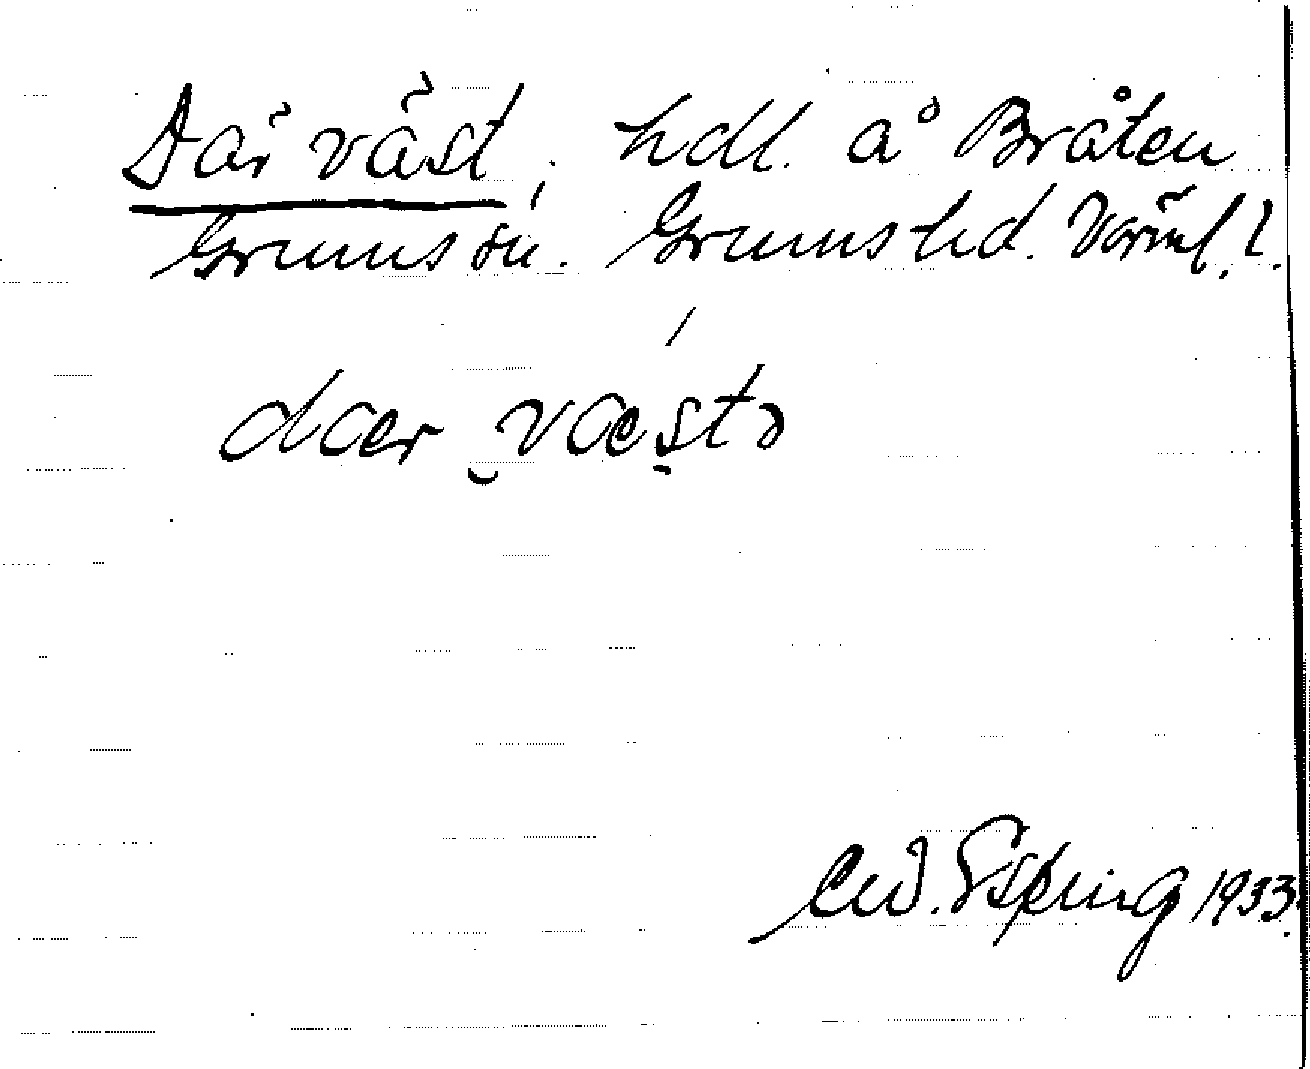 Där väst, hdl. å Bråten
Grums sn. Grums hd. Värml. l.
daer væstə
Espling 1933.